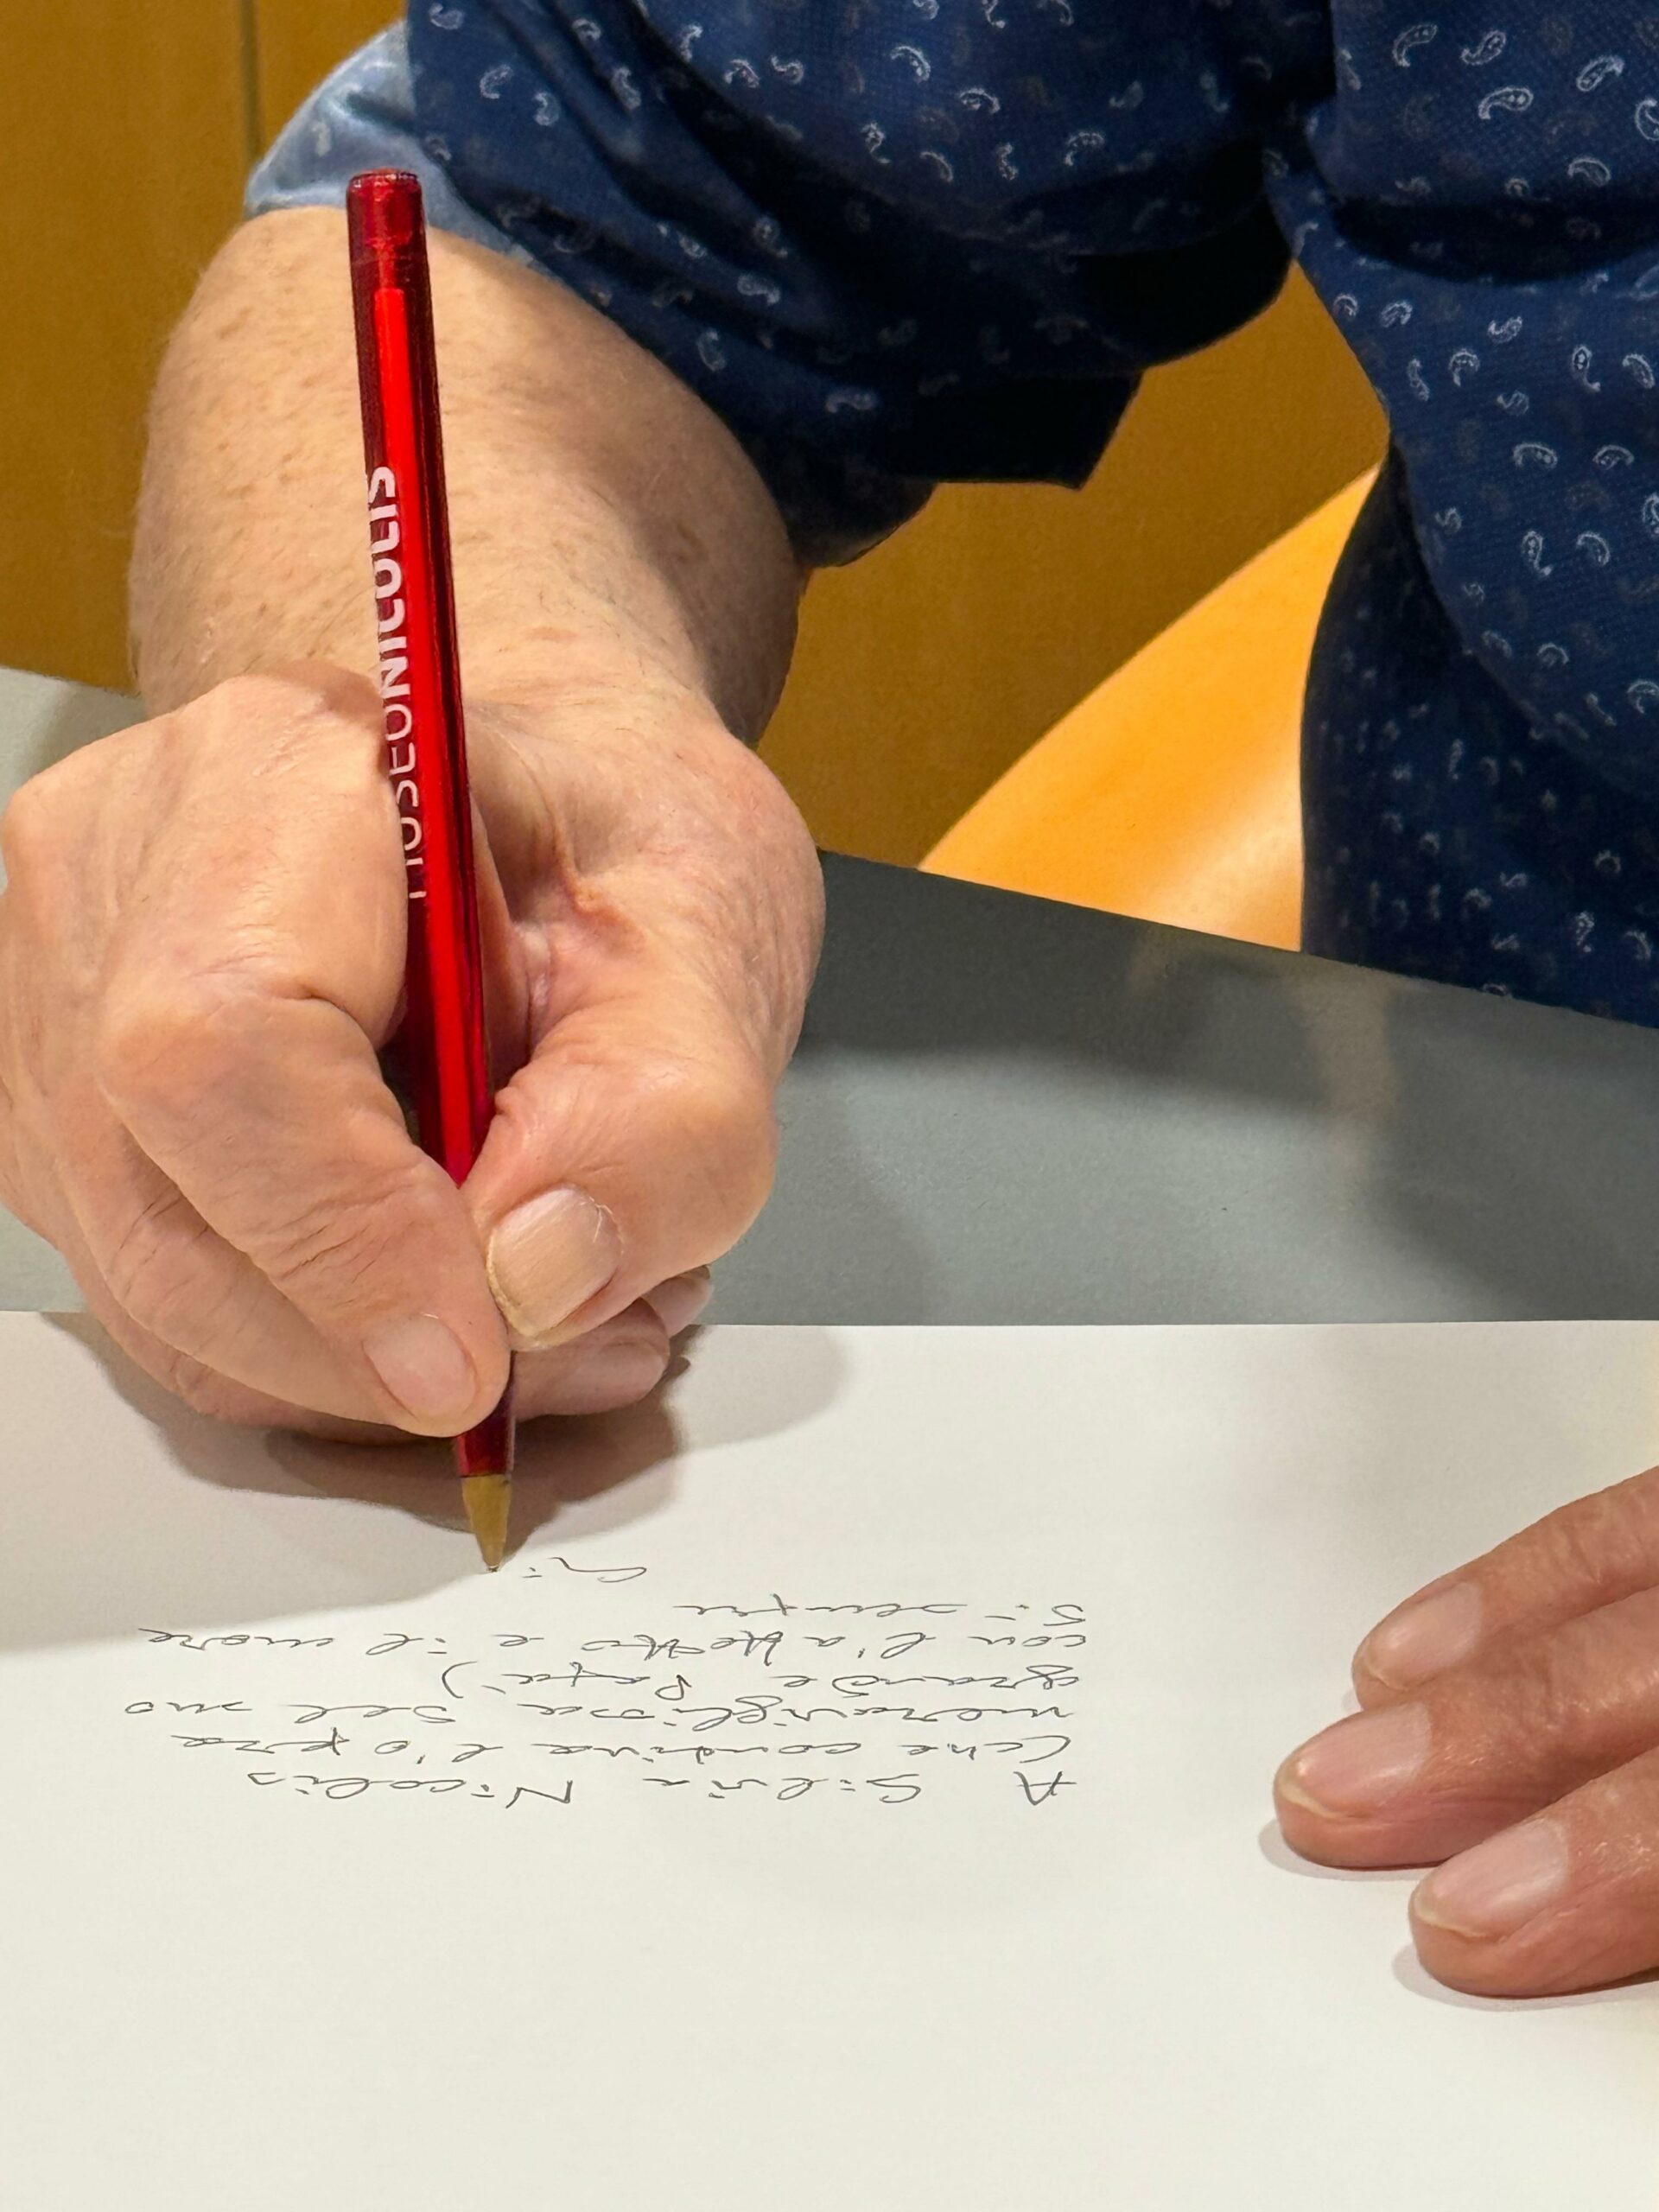 MUSEONICOLIS
A Silvia Nicolis
(che continua l'opera
meravigliosa del suo
grande Papà)
con l'affetto e il cuore
di sempre